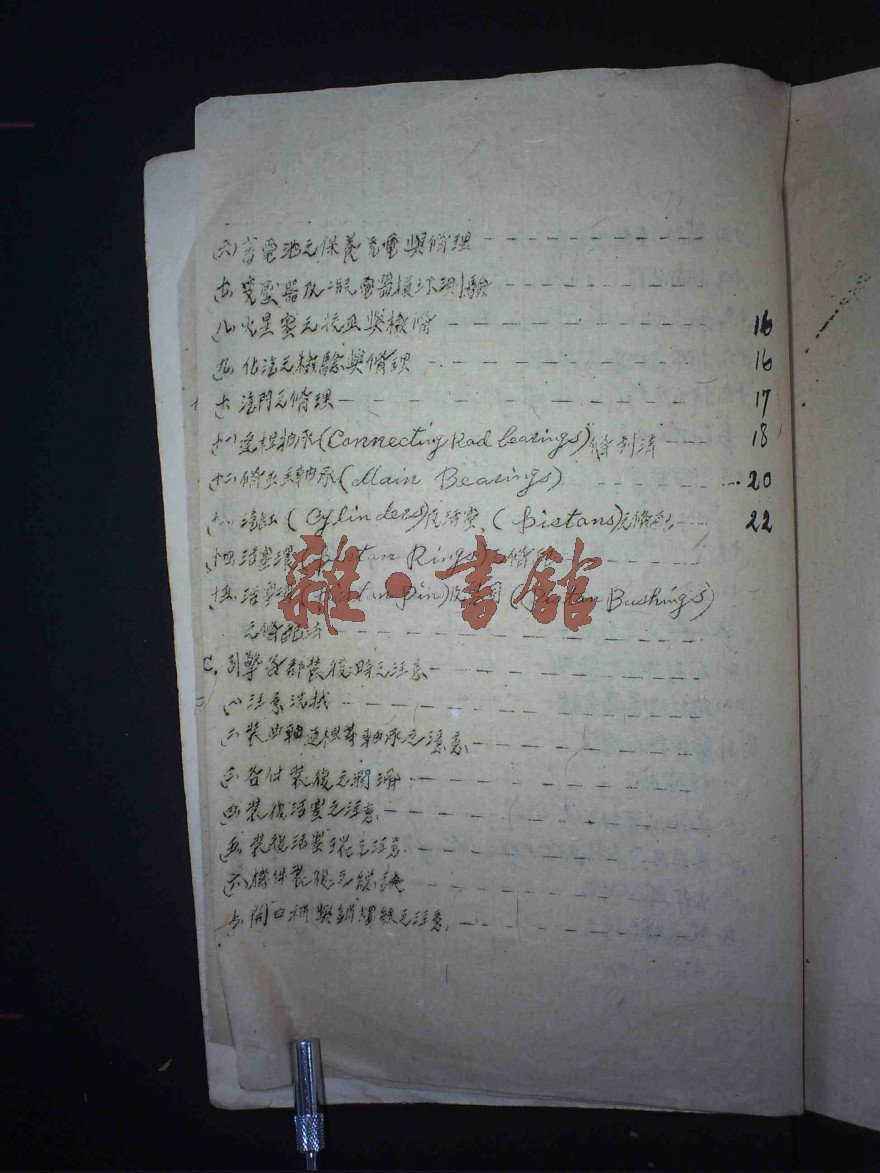 六、蓄電池之保養充電與修理
七、變壓器及凝電器損坏測驗
八、火星塞之校正與檢修 16
九、估汽之檢驗與修理 16
十、汽門之修理 17
十一、連桿軸承(Connecting Rod bearings)修刮法 18
十二、修正主軸承(Main Bearings) 20
十三、汽缸(Cylinders)及活塞(Pistans)之修配 22
十四、活塞環(Pistan Rings)之修配
十五、活塞(Pistan Pin)及(Pistan Bushings)
之修配法
C. 引擎各部裝復時之注意
一、注意洗拭
二、裝曲軸連桿等軸承之注意
三、各件裝復之潤滑
四、裝復活塞之注意
五、裝復活塞環之注意
六、機件裝復之
七、開口梢與鎖螺絲之注意
雜·書館